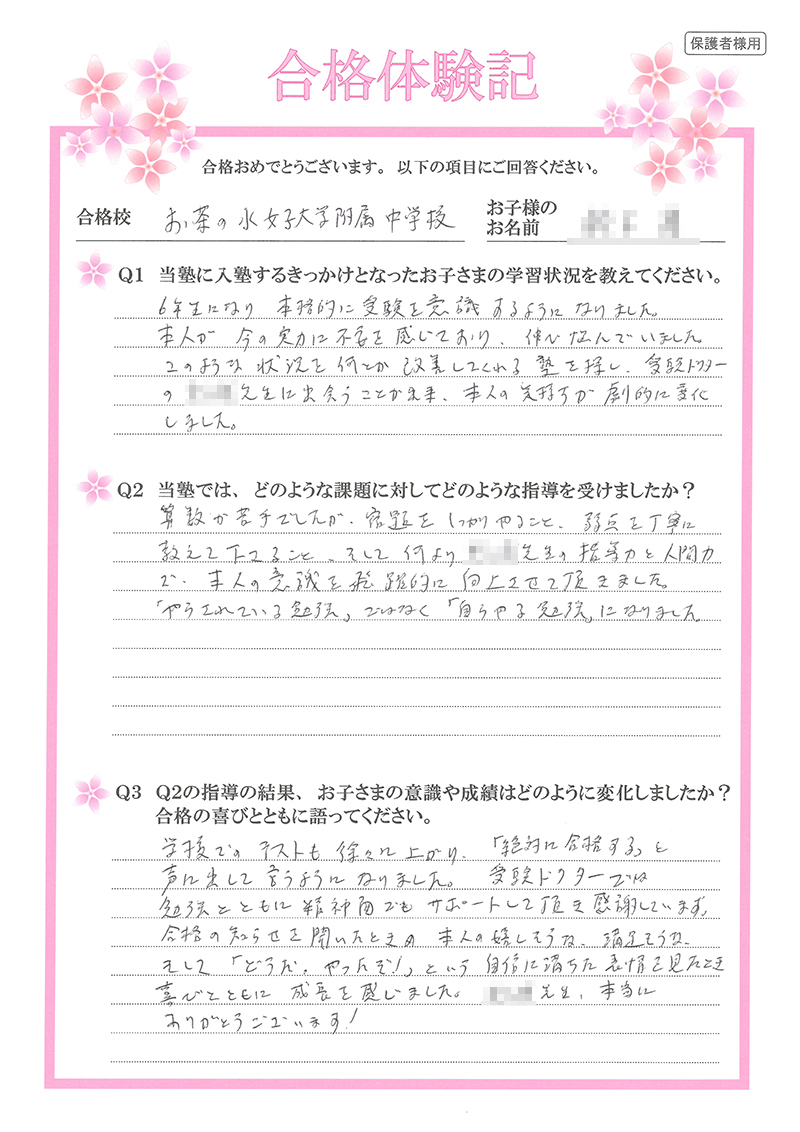 保護者様用
合格体験記
合格おめでとうございます。以下の項目にご回答ください。
合格校 お茶の水女子大学附属中学校
お子様の
お名前
Q1 当塾に入塾するきっかけとなったお子さまの学習状況を教えてください。
6年生になり 本格的に受験を意識するようになりました。
本人が 今の実力に不安を感じており、伸び悩んでいました。
このような 状況を何とか 改善してくれる 塾を探し、受験ドクター
の 先生に出会うことが出来、本人の気持ちが 劇的に変化
しました。
Q2 当塾では、どのような課題に対してどのような指導を受けましたか？
算数が苦手でしたが、宿題を しっかりやること、弱点を丁寧に
教えて下さること、そして 何より 先生の指導力と人間力
で、本人の意識を飛躍的に 向上させて頂きました。
「やらされている勉強」ではなく「自らやる勉強」になりました。
Q3 Q2の指導の結果、お子さまの意識や成績はどのように変化しましたか？
合格の喜びとともに語ってください。
学校でのテストも 徐々に上がり、「絶対に合格する」と
声に出して言うようになりました。 受験ドクターでは
勉強とともに精神面でもサポートして頂き感謝しています。
合格の知らせを聞いたときの 本人の嬉しそうな、満足そうな、
そして「どうだ、やったぞ!」という 自信に満ちた表情を見たとき
喜びとともに 成長を感じました。 先生、本当に
ありがとうございます!